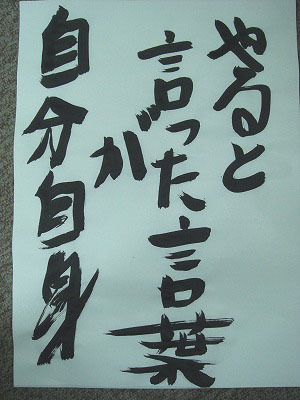 やると
言った言葉
が
自分自身